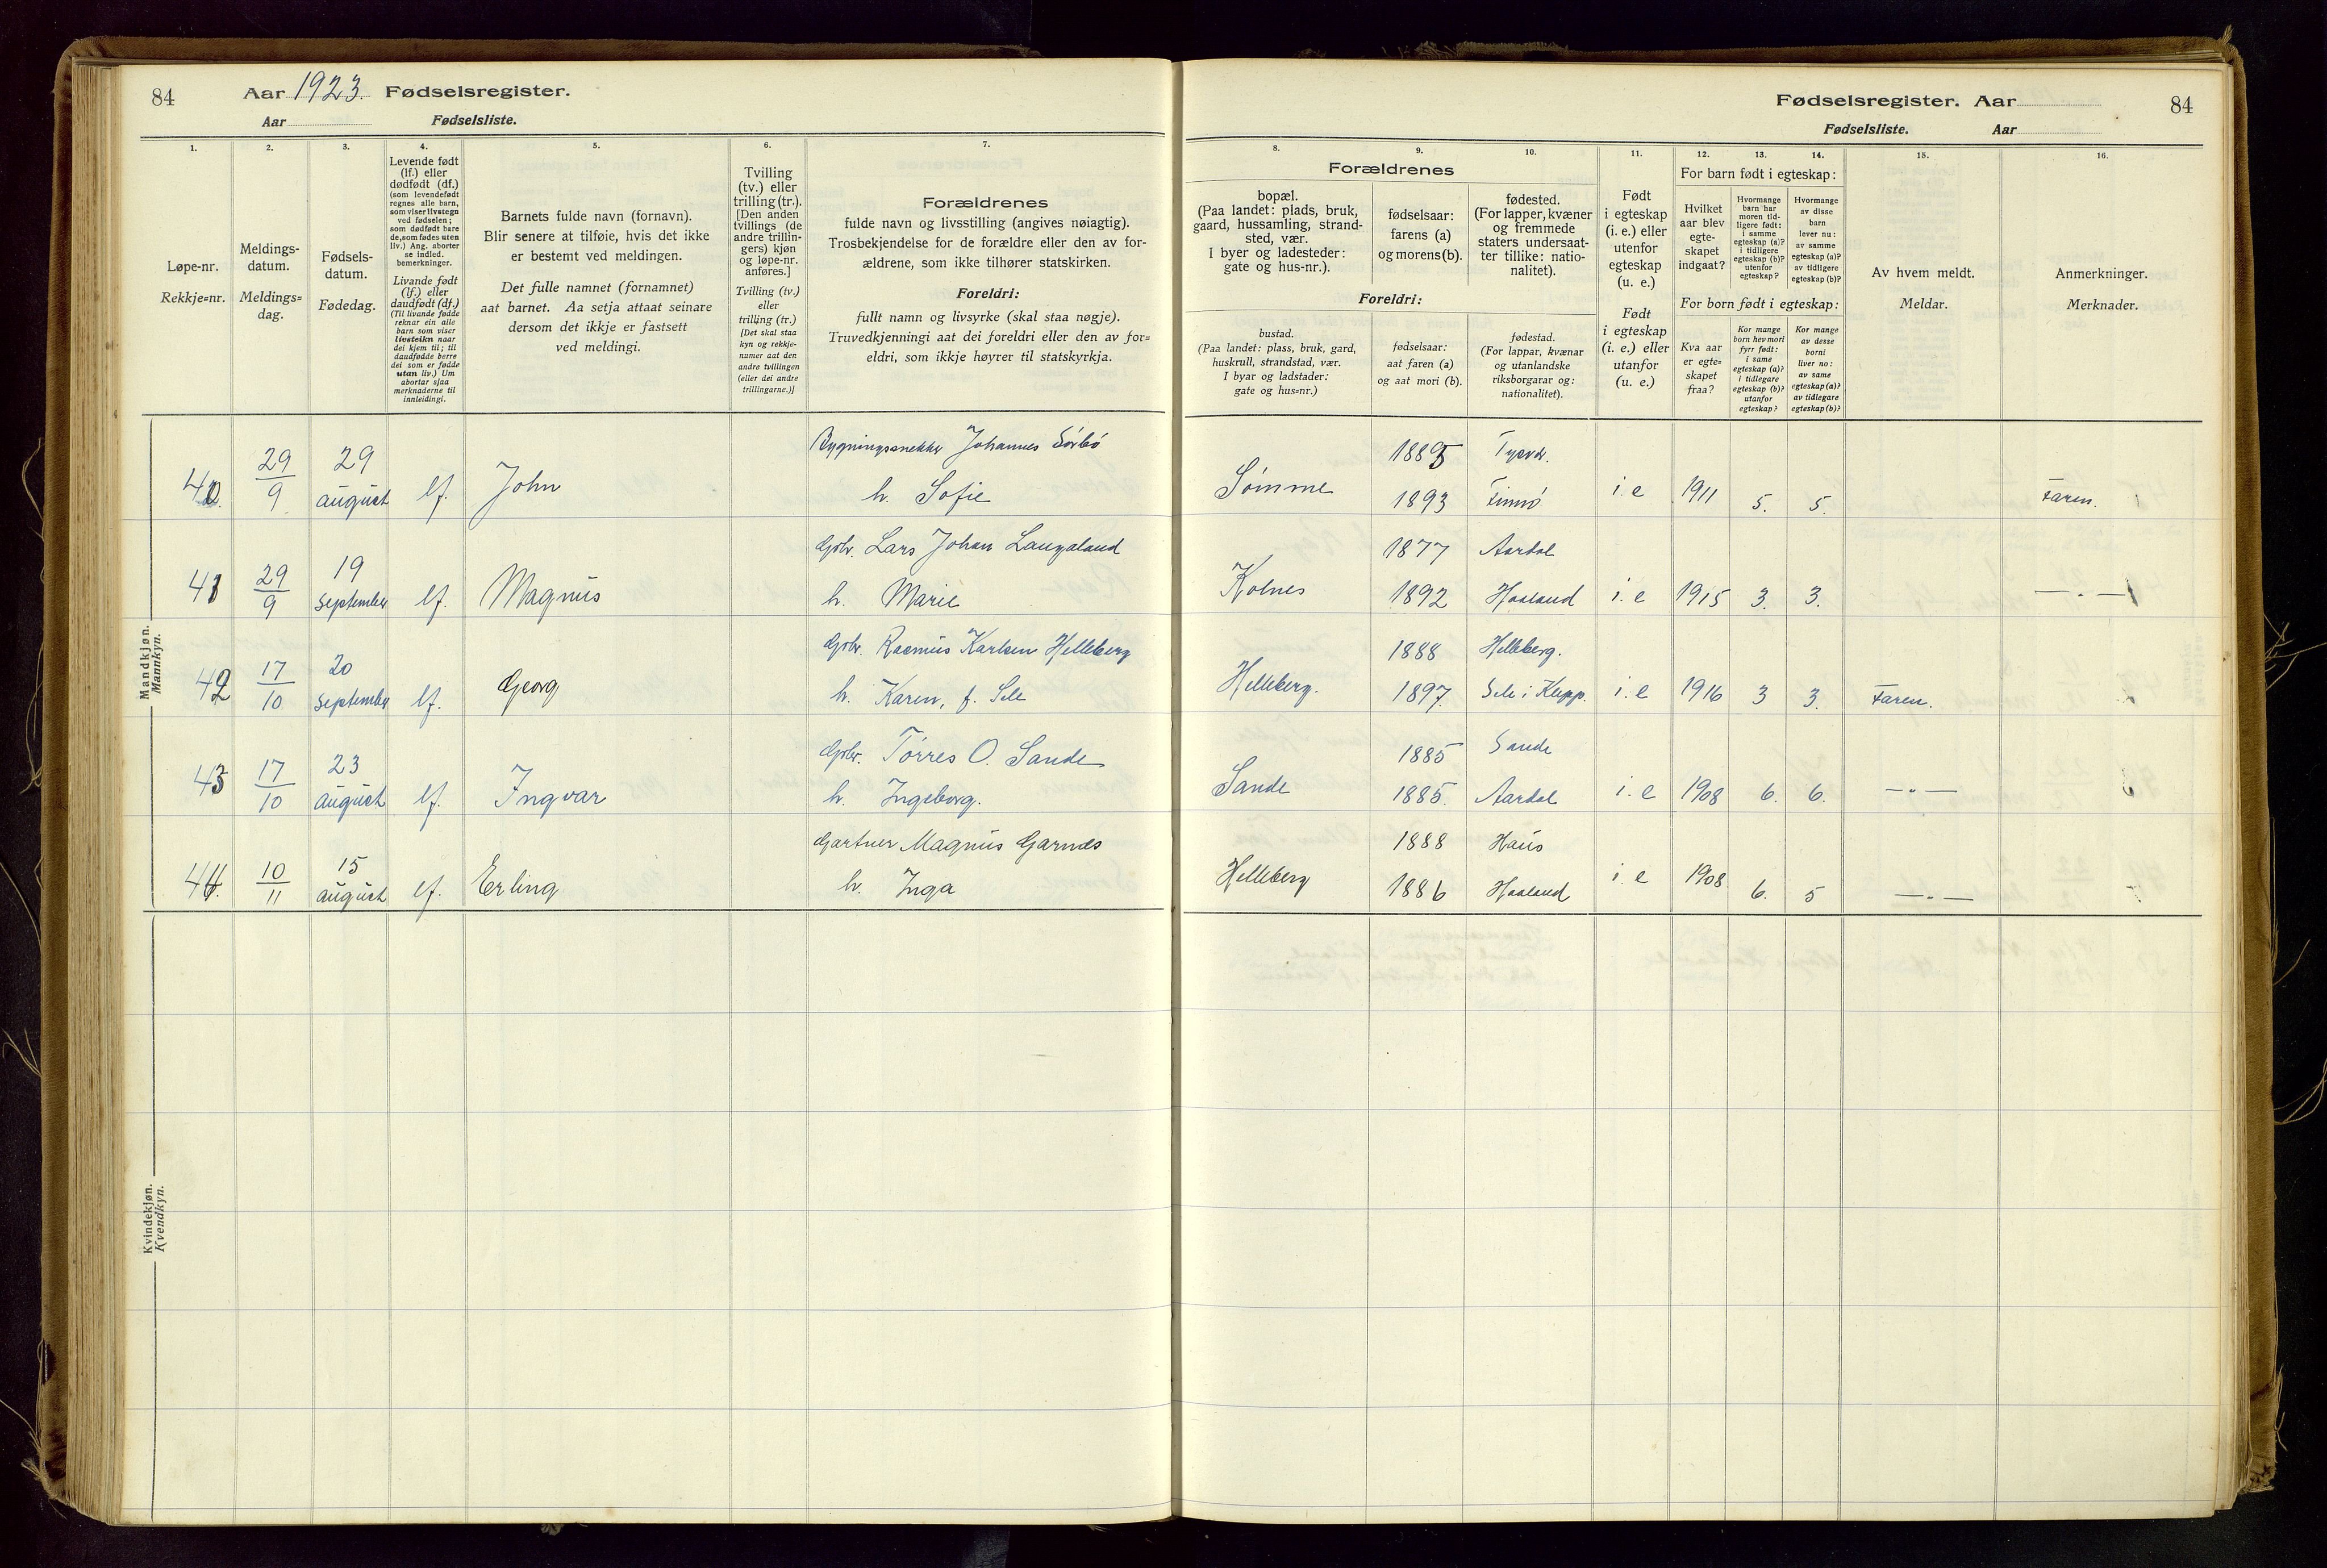 84 Aar 1923. Fødselsregister.
Aar Fødselsliste.
Fødselsregister. Aar 84
Fødselsliste. Aar
1. 2. 3. 4. 5. 6. 7.
Løpe-nr.
Rekkje=nr.
Meldings-
datum.
Meldings=
dag.
Fødsels-
datum.
Fødedag.
Levende født
(lf.) eller
dødfødt (df.)
(som levendefødt
regnes alle barn,
som viser livstegn
ved fødselen;
som dødfødt bare
de, som fødes uten
liv.) Ang. aborter
se indled.
bemerkninger.
Livande født
(lf.) eller
daudfødt (df.)
(Til livande fødde
reknar ein alle
barn som viser
livsteikn naar
dei kjem til; til
daudfødde berre
dei som er fødde
utan liv.) Um
abortar sjaa
merknaderne til
innleidingi.
Barnets fulde navn (fornavn).
Blir senere at tilføie, hvis det ikke
er bestemt ved meldingen.
Det fulle namnet (fornamnet)
aat barnet. Aa setja attaat seinare
dersom det ikkje er fastsett
ved meldingi.
Tvilling
(tv.) eller
trilling (tr.).
[Den anden
tvillings (de
andre trillin-
gers) kjøn
og løpe-nr.
anføres.]
Tvilling (tv.)
eller
trilling (tr.)
[Det skal staa
kyn og rekkje-
numer aat den
andre tvillingen
(eller dei andre
trillingarne.)]
Forældrenes
fulde navn og livsstilling (angives nøiagtig).
Trosbekjendelse for de forældre eller den av for-
ældrene, som ikke tilhører statskirken.
Foreldri:
fullt namn og livsyrke (skal staa nøgje).
Truvedkjenningi aat dei foreldri eller den av for=
eldri, som ikkje høyrer til statskyrkja.
8. 9. 10. 11. 12. 13. 14. 15. 16.
Forældrenes
bopæl.
(Paa landet: plads, bruk,
gaard, hussamling, strand-
sted, vær.
I byer og ladesteder:
gate og hus-nr.).
fødselsaar:
farens (a)
og morens (b).
fødested.
(For lapper, kvæner
og fremmede
staters undersaat-
ter tillike: natio-
nalitet).
Foreldri:
bustad.
(Paa landet: plass, bruk, gard,
huskrull, strandstad, vær.
I byar og ladstader:
gate og hus=nr.)
fødselsaar:
aat faren (a)
og aat mori (b).
fødestad.
(For lappar, kvænar
og utanlandske
riksborgarar og:
nationalitet).
Født
i egteskap
(i. e.) eller
utenfor
egteskap
(u. e.)
Født
i egteskap
(i. e.) eller
utanfor
(u. e.)
For barn født i egteskap:
Hvilket
aar blev
egte-
skapet
indgaat?
Hvormange
barn har
moren tid-
ligere født:
i samme
egteskap (a)?
i tidligere
egteskap (b)?
utenfor
egteskap?
Hvormange
av disse
barn
lever nu:
av samme
egteskap (a)?
av tidligere
egteskap (b)?
For born født i egteskap:
Kva aar
er egte=
skapet
fraa?
Kor mange
born hev mori
fyrr født:
i same
egteskap (a)?
i tidlegare
egteskap (b)?
utanfor
egteskap?
Kor mange
av desse
borni
liver no:
av same
egteskap (a)?
av tidlegare
egteskap (b)?
Av hvem meldt.
Meldar.
Anmerkninger.
Merknader.
Mandkjøn.
Mannkyn.
Bygningssnekker Johannes Sörbö 1885 Tysvær.
40. 29/9 29 august lf. John h. Sofie Sömme 1893 Finnö i. e 1911 5. 5. Faren.
Gbr. Lars Johan Langaland 1877 Aardal
41 29/9 19 september lf. Magnus h. Marie Kolnes 1892 Haaland i. e 1915 3. 3. —"—
Gbr. Rasmus Karlsen Helleberg 1888 Helleberg.
42 17/10 20 september lf. Georg h. Karen, f. Sele Helleberg. 1897. Sele i Klepp. i. e 1916 3 3. Faren.
Gbr. Törres O. Sande 1885 Sande
43 17/10 23 august lf. Ingvar h. Ingeborg. Sande 1885. Aardal i. e 1908 6. 6. —"—
Gartner Magnus Garnes 1888 Haus
44. 10/11 15 august lf. Erling h. Inga Helleberg 1886 Haaland i. e 1908 6. 5 —"—
Kvindekjøn.
Kvendkyn.